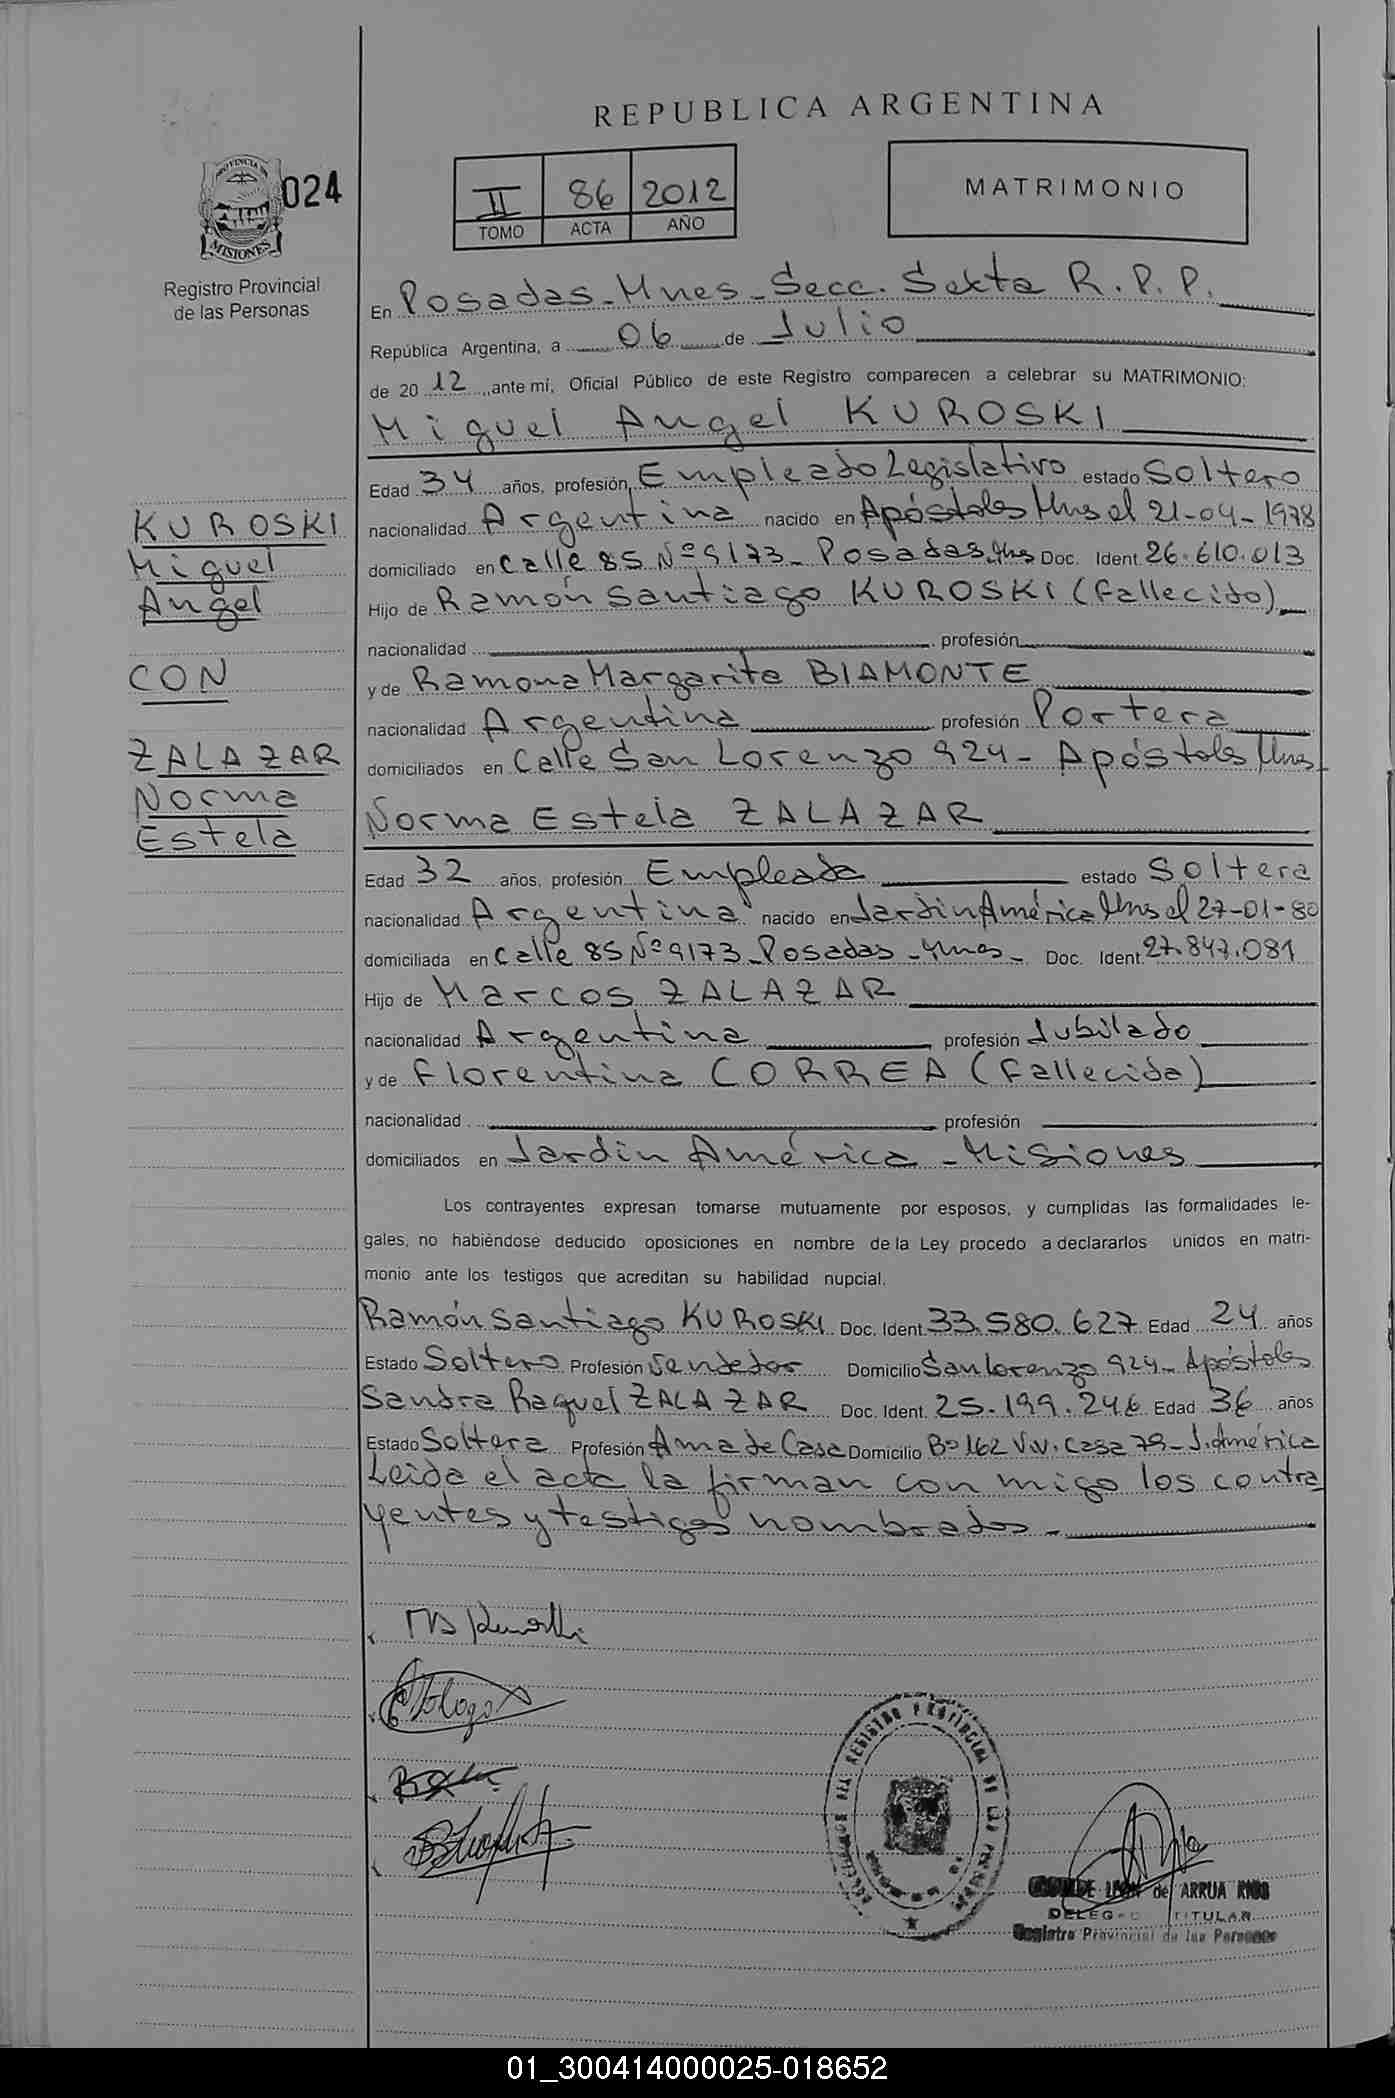 REPUBLICA ARGENTINA
PROVINCIA DE
MISIONES
024
Registro Provincial
de las Personas
II 86 2012
TOMO ACTA AÑO
MATRIMONIO
En Posadas-Mnes-Secc. Sexta R.P.P.
República Argentina, a 06 de Julio
de 2012, ante mi, Oficial Público de este Registro comparecen a celebrar su MATRIMONIO:
Miguel Angel KUROSKI
Edad 34 años, profesión Empleado Legislativo estado Soltero
nacionalidad Argentina nacido en Apóstoles Mns el 21-04-1978
domiciliado en Calle 85 Nº 9173- Posadas, Mns Doc. Ident. 26.610.013
Hijo de Ramón Santiago KUROSKI (fallecido)
nacionalidad profesión
y de Ramona Margarita BIAMONTE
nacionalidad Argentina profesión Portera
domiciliados en Calle San Lorenzo 924- Apóstoles Mnes
KUROSKI
Miguel
Angel
CON
ZALAZAR
Norma
Estela
Norma Estela ZALAZAR
Edad 32 años, profesión Empleada estado Soltera
nacionalidad Argentina nacido en Jardin América Mns el 27-01-80
domiciliada en Calle 85 Nº 9173-Posadas-Mnes- Doc. Ident. 27.847.081
Hijo de Marcos ZALAZAR
nacionalidad Argentina profesión Jubilado
y de Florentina CORREA (fallecida)
nacionalidad profesión
domiciliados en Jardin América - Misiones
Los contrayentes expresan tomarse mutuamente por esposos, y cumplidas las formalidades le-
gales, no habiéndose deducido oposiciones en nombre de la Ley procedo a declararlos unidos en matri-
monio ante los testigos que acreditan su habilidad nupcial.
Ramón Santiago KUROSKI Doc. Ident. 33.580.627 Edad 24 años
Estado Soltero Profesión Vendedor Domicilio San Lorenzo 924- Apóstoles
Sandra Raquel ZALAZAR Doc. Ident. 25.199.246 Edad 36 años
Estado Soltera Profesión Ama de Casa Domicilio Bº 162 Viv. Casa 79-J. América
Leida el acta la firman con migo los contra
yentes y testigos nombrados.-
REGISTRO PROVINCIAL DE LAS PERSONAS
de ARRUA RIOS
TITULAR
Registro Provincial de las Personas
01_300414000025-018652